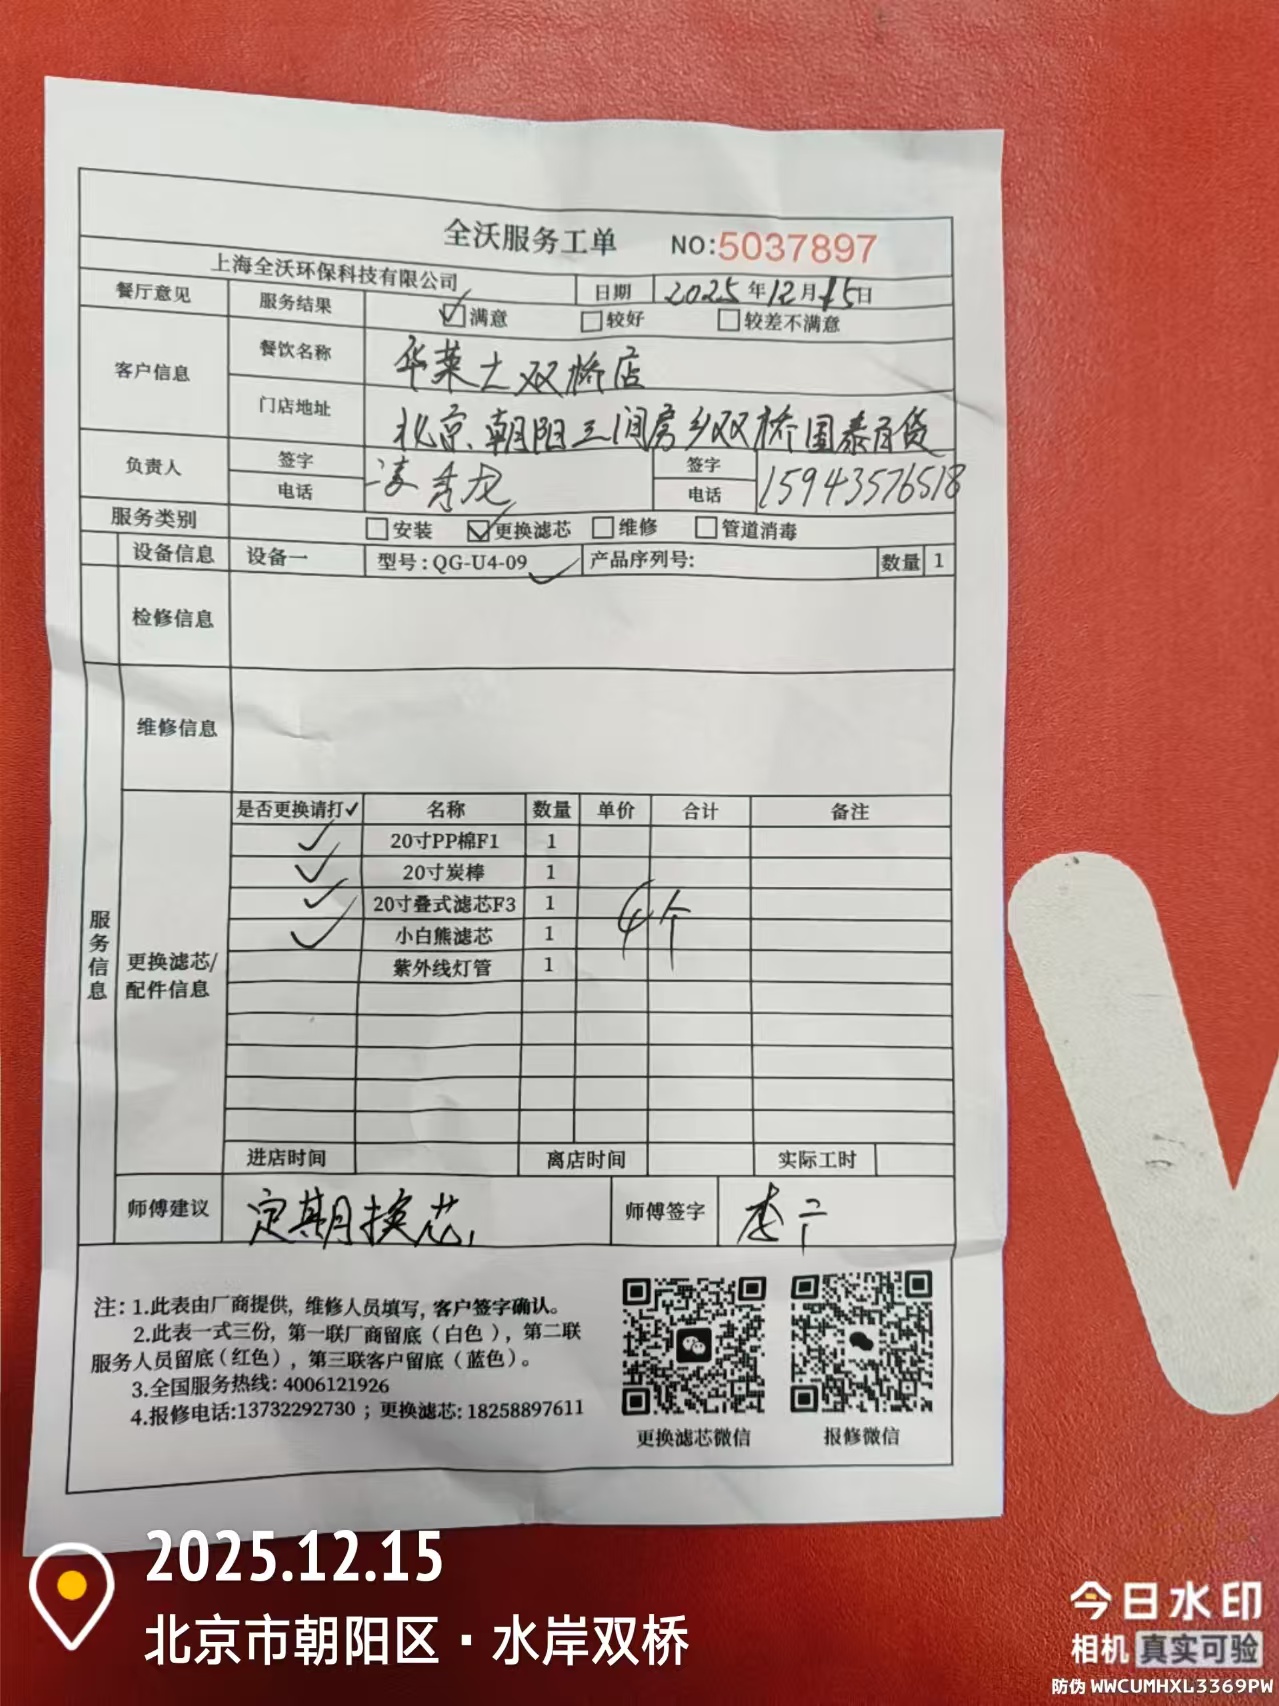 全沃服务工单 NO:5037897
上海全沃环保科技有限公司 日期 2025年12月15日
餐厅意见 服务结果 满意 较好 较差不满意
客户信息 餐饮名称 华莱士双桥店
门店地址 北京朝阳三间房乡双桥国泰百货
负责人 签字 凌秀龙 签字
电话 电话 15943576518
服务类别 安装 更换滤芯 维修 管道消毒
设备信息 设备一 型号:QG-U4-09 产品序列号: 数量 1
检修信息
维修信息
服务信息
更换滤芯/
配件信息
是否更换请打✓ 名称 数量 单价 合计 备注
✓ 20寸PP棉F1 1
✓ 20寸炭棒 1
✓ 20寸叠式滤芯F3 1 4个
✓ 小白熊滤芯 1
紫外线灯管 1
进店时间 离店时间 实际工时
师傅建议 定期换芯 师傅签字
注:1.此表由厂商提供,维修人员填写,客户签字确认。
2.此表一式三份,第一联厂商留底(白色),第二联
服务人员留底(红色),第三联客户留底(蓝色)。
3.全国服务热线:4006121926
4.报修电话:13732292730;更换滤芯:18258897611
更换滤芯微信 报修微信
2025.12.15
北京市朝阳区·水岸双桥
今日水印
相机 真实可验
防伪 WWCUMHXL3369PW